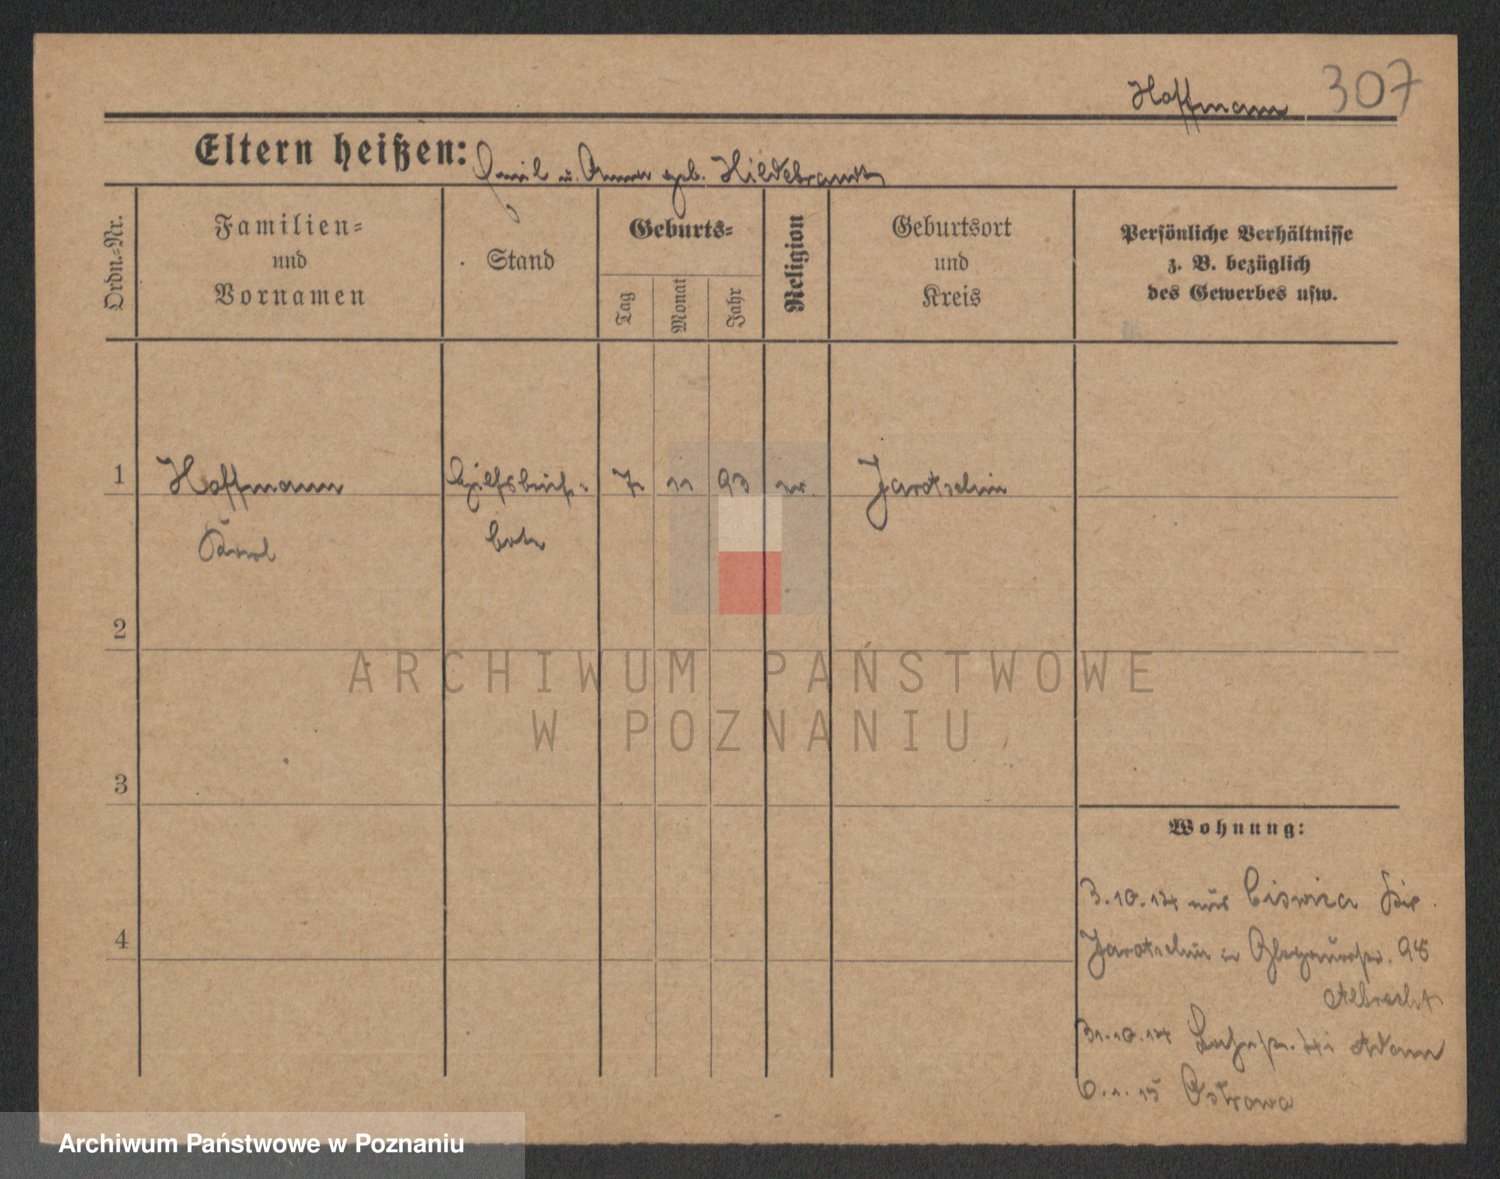 Hoffmann 307
Eltern heißen: Emil u. Anna geb. Hildebrandt
Ordn.-Nr.
Familien-
und
Vornamen
Stand
Geburts-
Tag
Monat
Jahr
Religion
Geburtsort
und
Kreis
Persönliche Verhältnisse
z. B. bezüglich
des Gewerbes usw.
1 Hoffmann Hilfsbrief- 7 11 93 ev. Jarotschin
Karl bote
2
3
4
Wohnung:
3.10.14 aus Ciswica Kr.
Jarotschin n. 98
Albrecht
31.10.14 Adam
6.1.15 Ostrowo
ARCHIWUM PAŃSTWOWE
W POZNANIU
Archiwum Państwowe w Poznaniu